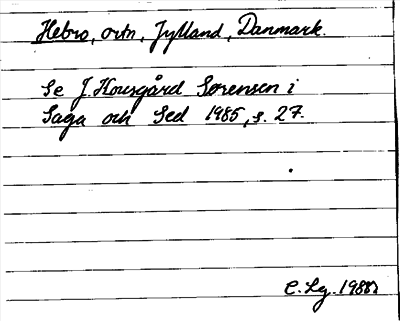 Hebro, ortn, Jylland, Danmark.
Se J. Kousgård Sørensen i
Saga och Sed 1985, s. 27.
C. Lg. 1988